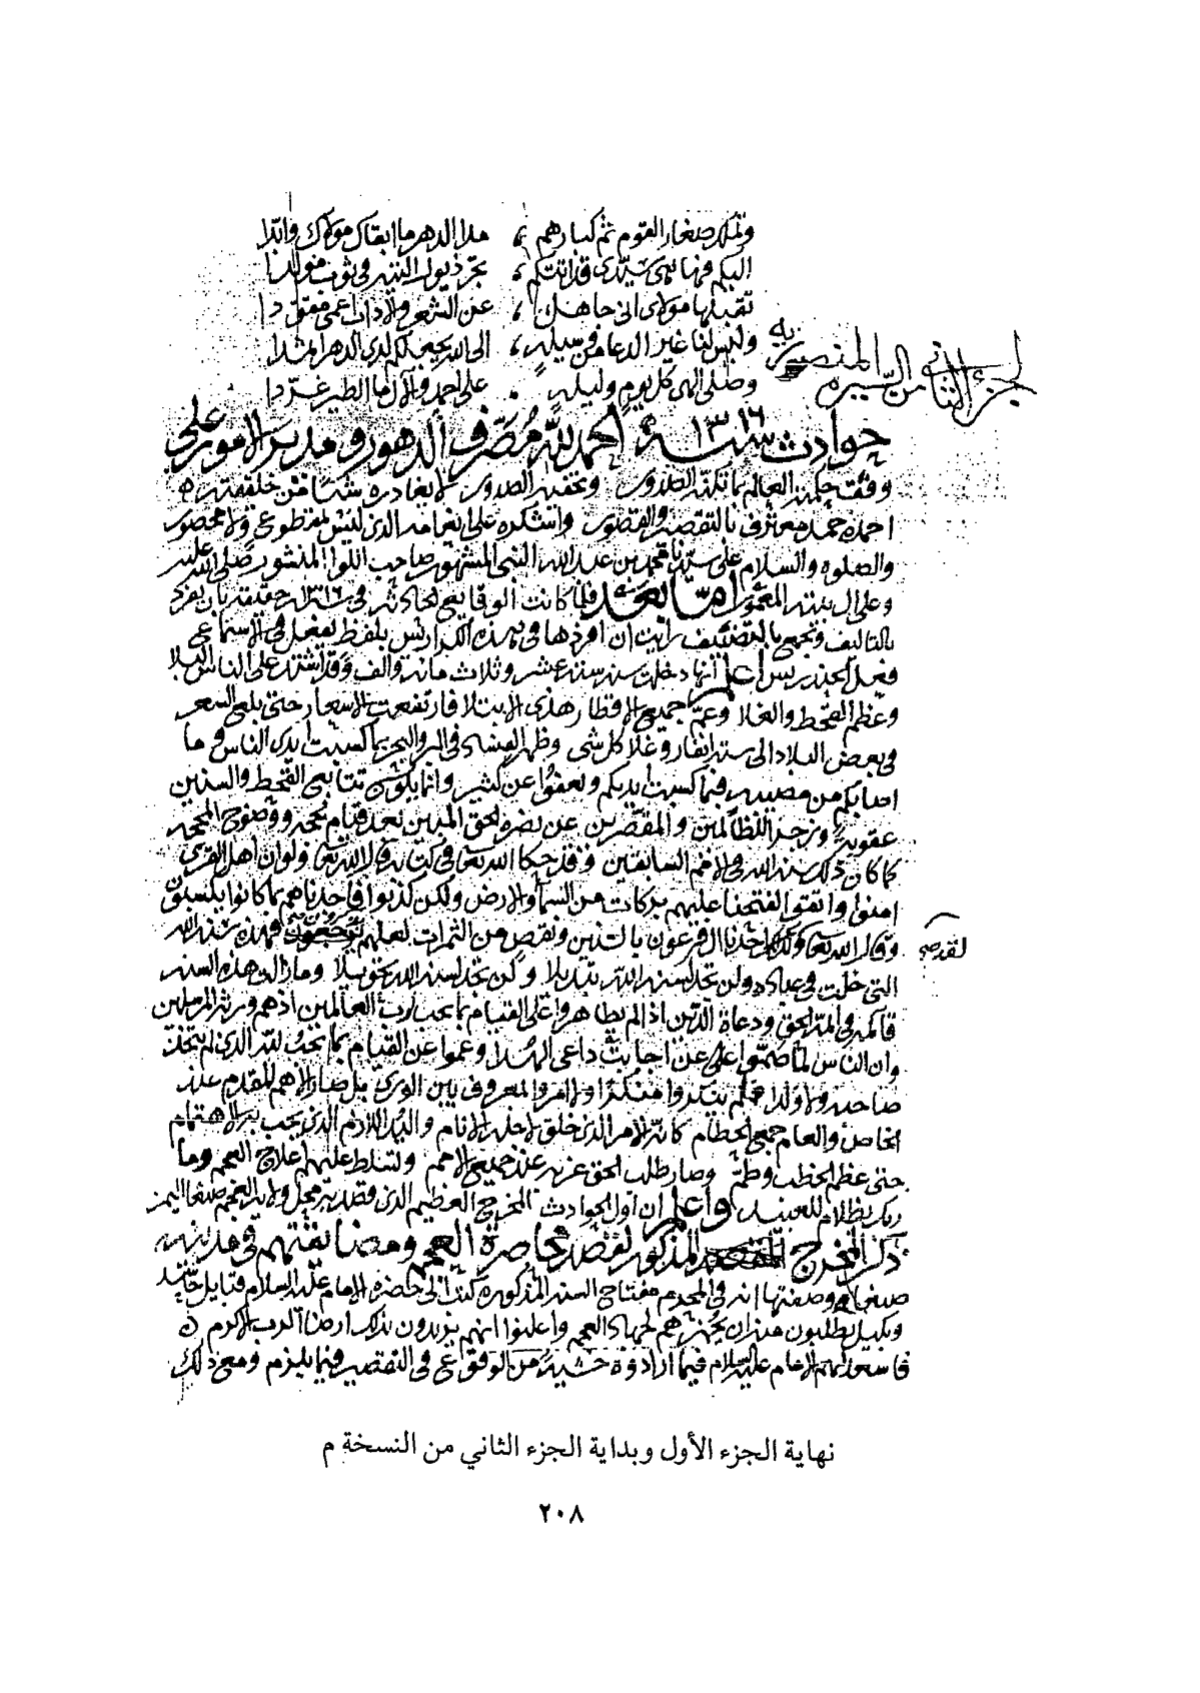 وتملكه صغار القوم ثم كبارهم ، مدا الدهر ما ابقاك مولاك وابدا
اليكم فها نهى سيدي قد اتتكم ، بجر ذيول التيه في ثوب
تقبلها مولاي اني جاهل ، عن الشعر والاداب اعمى مفقدا
وليس لنا غير الدعا من سيله ، الى الله يحيى لكم لدى الدهر
وصلى الهي كل يوم وليله على احمد والآل ما الطير غردا
الجزء الثاني من السيره المنصوريه
حوادث سنة ١٣١٦ الحمد لله مصرف الدهور ومدبر الامور على
وفق حكمته العالم بما تكنه الصدور وتخفيه الصدور لا يغادره شيئا من خليقته
احمده حمد معترف بالتقصير والقصور واشكره على انعامه الذي ليس بمقطوع ولا محصور
والصلوه والسلام على سيدنا محمد بن عبد الله النبي المشهور صاحب اللوا المنشور صلى الله عليه
وعلى ال بيته المعمور اما بعد فلما كانت الوقايع الحادثه في سنة ١٣١٦ حقيقة بان تفرد
بالتاليف وتجمع بالتصنيف رايت ان افردها في هذه الكراريس بلفظ يفعل في الاسماع
فعل الخندريس اعلم انها دخلت سنة ستة عشر وثلاث مائة والف وقد اشتد على الناس البلا
وعظم القحط والغلا وعم جميع الاقطار هذي الابتلا فارتفعت الاسعار حتى بلغ السعر
في بعض البلاد الى ستة انفار وغلا كل شي وظهر الفساد في البر والبحر بما كسبت ايدي الناس وما
اصابكم من مصيبة فبما كسبت ايديكم ويعفوا عن كثير وانما يكون تتابع القحط والسنين
عقوبة وزجرا للظالمين والمقصرين عن نصرة الحق المبين بعد قيام الحجه ووضوح المحجه
كما كان ذلك سنة الله في الامم السابقين وقد حكا الله تعالى في كتابه قال الله تعالى ولو ان اهل القرى
امنوا واتقوا لفتحنا عليهم بركات من السما والارض ولكن كذبوا فاخذناهم بما كانوا يكسبون
وقال الله تعالى ولقد اخذنا ال فرعون بالسنين ونقص من الثمرات لعلهم يذكرون فهذه سنة الله
لقد صح
التي خلت في عباده ولن تجد لسنة الله تبديلا ولن تجد لسنة الله تحويلا وما زالت هذه السنه
قائمه في ائمة الحق ودعاة الدين اذا لم يظاهروا على القيام بما يجب لرب العالمين اذ هم ورثة المرسلين
وان الناس لما صموا عن اجابة داعي الهدا وعموا عن القيام بما يجب لله الذي لم يتخذ
صاحبة ولا ولدا فلم ينكروا منكرا ولا امروا المعروف بين الورى بل صار الاهم المقدم عند
الخاص والعام جمع الحطام كانه الامر الذي خلق لاجله الانام والبد اللازم الذي يجب به الاهتمام
حتى عظم الخطب وطم وصار طلب الحق عزيز عند جميع الامم وتسلط عليهم اعلاج العجم وما
ربك بظلام للعبيد واعلم ان اول الحوادث المخرج العظيم الذي قصد به ولاية العجم صنعا اليمن
ذكر المخرج المذكور لقصد محاصرة العجم ومضايقتهم في مدينة
صنعا وصفتها انه في المحرم مفتاح السنة المذكوره كتب الى حضرة الامام عليه السلام قبايل حاشد
وبكيل يطلبون منه ان يجهزهم لجهاد العجم واعلنوا انهم يريدون بذلك ارضا الرب الاكرم
فاسعدهم الامام عليه السلام فيما ارادوه خشية من الوقوع في التقصير فيما يلزم ومع ذلك
نهاية الجزء الأول وبداية الجزء الثاني من النسخة م
٢٠٨